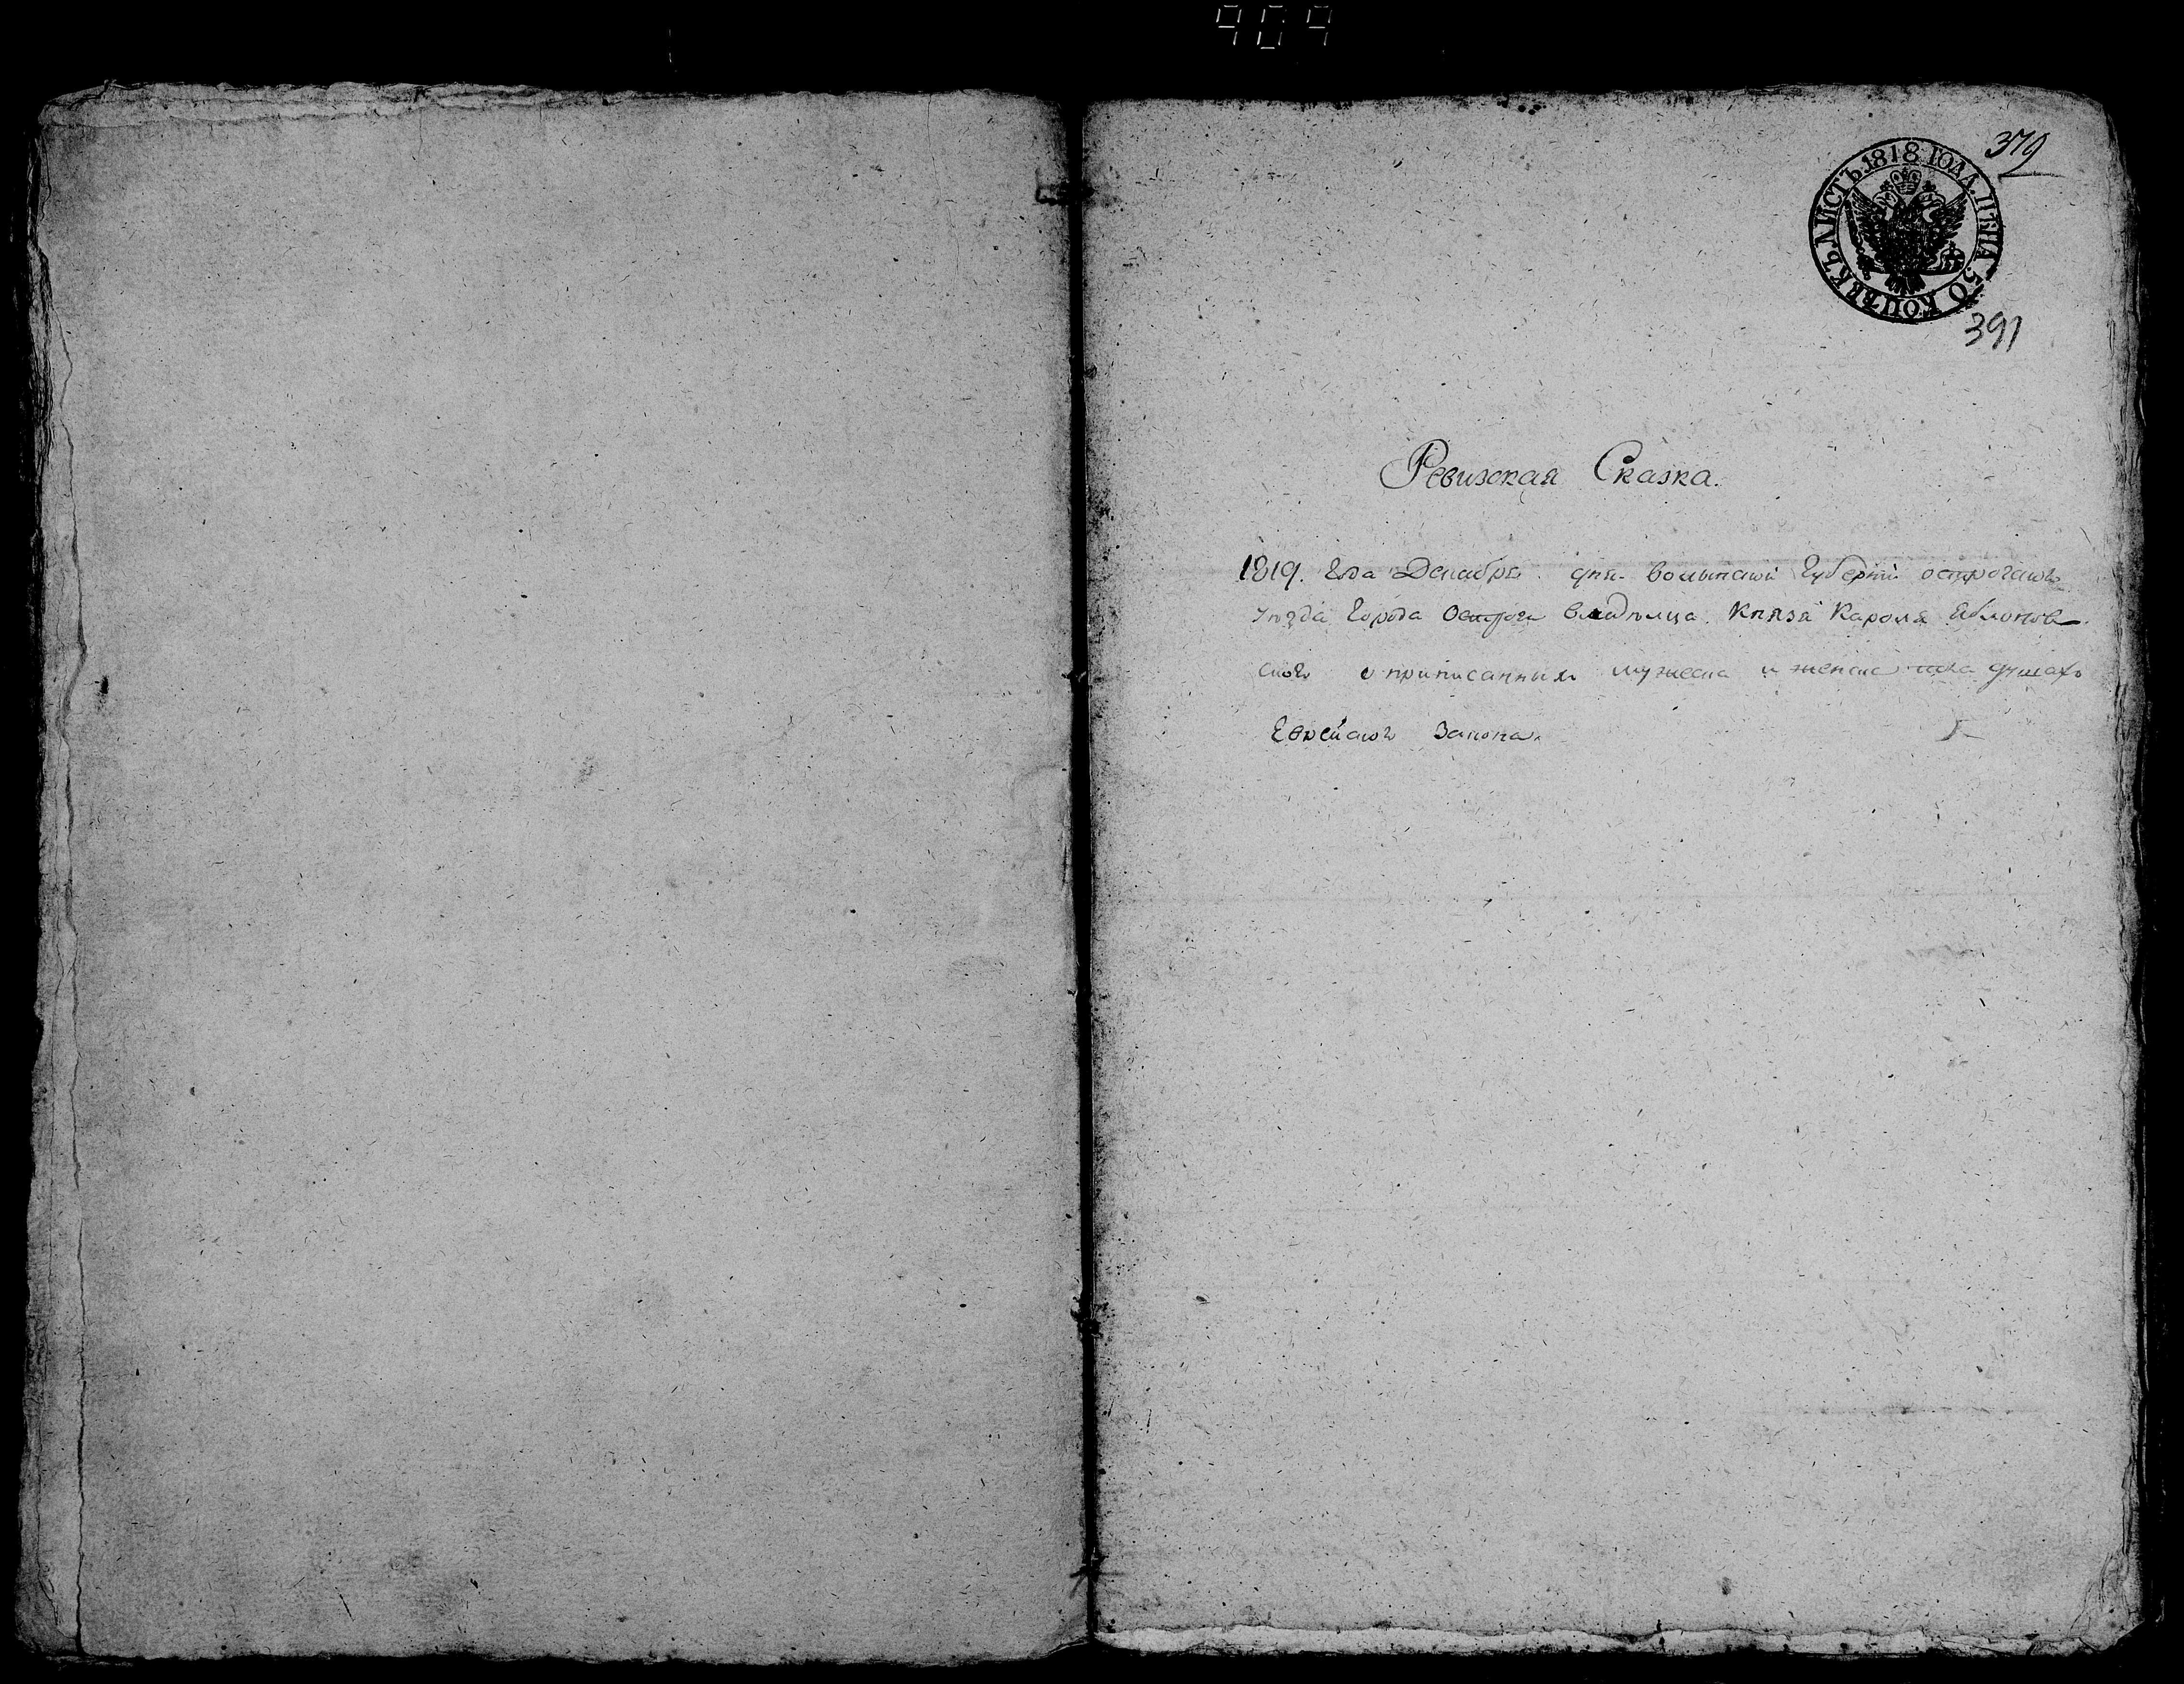 909
379
ЛИСТЪ. 1818 ГОДА. ЦѢНА 50 КОПѢЕКЪ.
391
Ревизская Сказка.
1819. Года Декабря дня Волынской Губерніи острогского
уѣзда Города Острога владѣльца Князя Кароля Яблонов
ского о приписанныхъ мужеска и женска пола душахъ
Еврейского Закона.